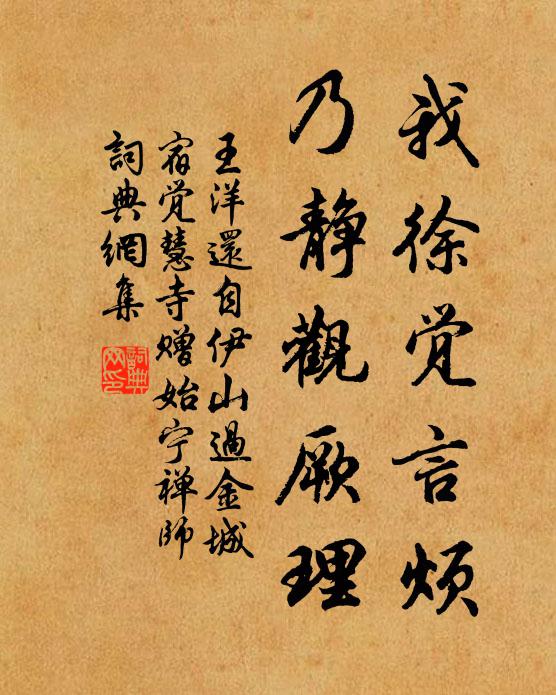 我徐觉言烦
乃静觀厥理
王洋還自伊山過金城
宿觉慧寺赠始宁禅師
詞典網集
詞典網印